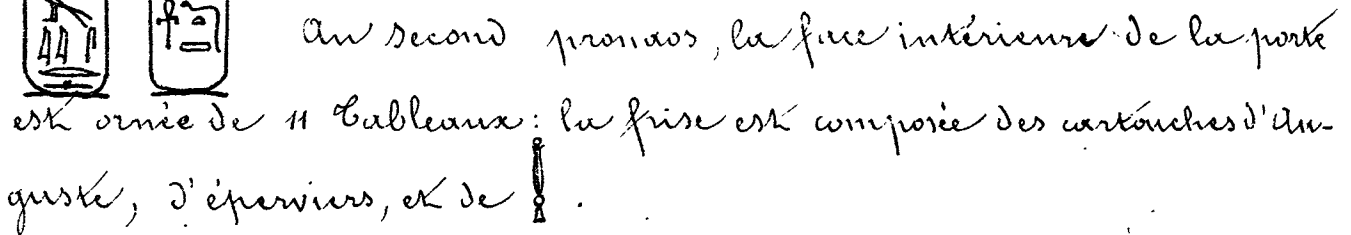 Au second pronaos, la face intérieure de la porte
est ornée de 11 Tableaux : la frise est composée des cartouches d'Au-
guste, d'éperviers, et de .